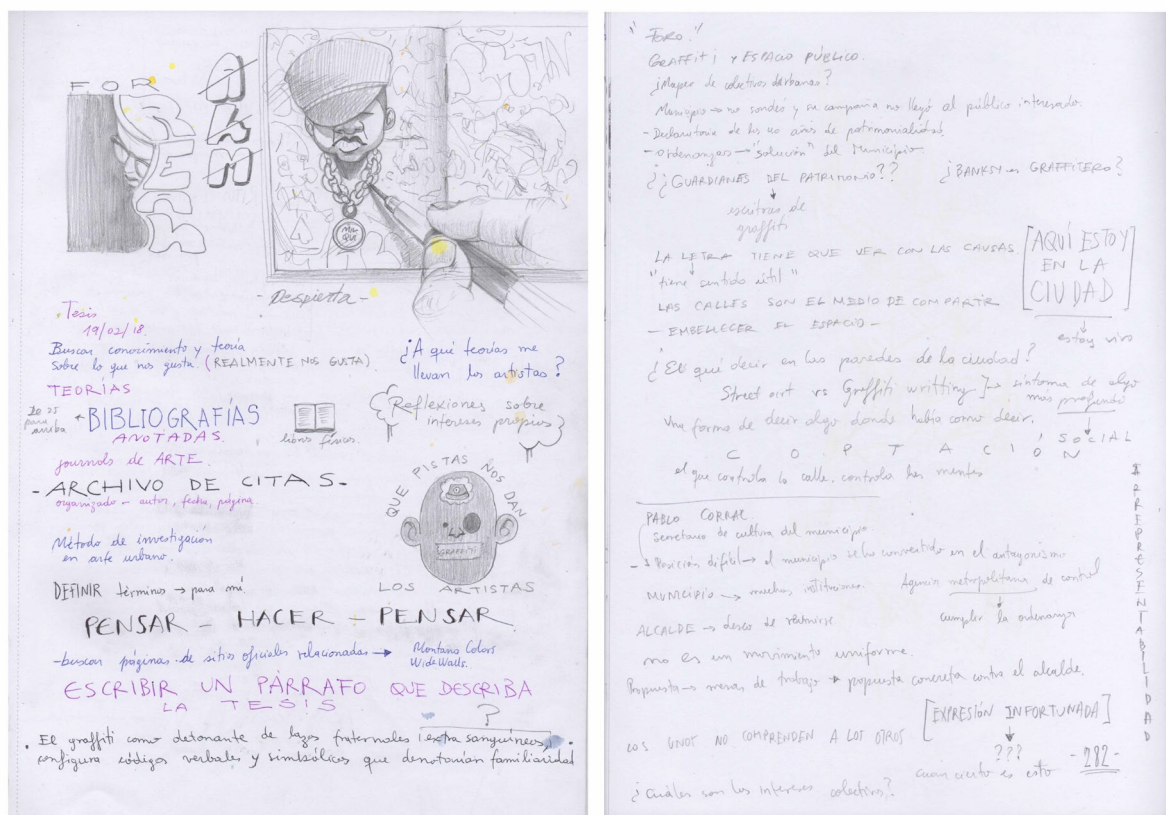 FOR
REAL
MA
QUI
- Despierta -
Tesis
19/02/18.
Buscar conocimiento y teoría
Sobre lo que nos gusta. (REALMENTE NOS GUSTA).
TEORÍAS
20 25
para
arriba
+ BIBLIOGRAFÍAS
ANOTADAS.
libros físicos.
journals de ARTE.
- ARCHIVO DE CITAS -
organizado - autor, fecha, página.
Método de investigación
en arte urbano.
DEFINIR términos → para mí.
¿A qué teorías me
llevan los artistas?
Reflexiones sobre
intereses propios
QUE PISTAS NOS DAN
GRAFFITI
LOS ARTISTAS
PENSAR - HACER - PENSAR
- buscar páginas de sitios oficiales relacionadas → Montana Colors
WideWalls.
ESCRIBIR UN PÁRRAFO QUE DESCRIBA
LA TESIS
?
• El graffiti como detonante de lazos fraternales extra sanguíneos, •
configura códigos verbales y simbólicos que denotarían familiaridad
"FORO."
GRAFFITI Y ESPACIO PÚBLICO.
¿Mapeo de colectivos urbanos?
Municipio → no sondeó y su campaña no llegó al público interesado.
- Declaratoria de los 40 años de patrimonialidad.
- ordenanzas → "solución" del Municipio.
¿¿GUARDIANES DEL PATRIMONIO??
¿BANKSY es GRAFFITERO?
escritores de
graffiti
LA LETRA TIENE QUE VER CON LAS CAUSAS
"tiene sentido útil"
LAS CALLES SON EL MEDIO DE COMPARTIR
- EMBELLECER EL ESPACIO -
[AQUÍ ESTOY
EN LA
CIUDAD]
estoy vivo
¿El qué decir en las paredes de la ciudad?
Street art vs Graffiti writting } → síntoma de algo
más profundo
Una forma de decir algo donde había como decir.
COPTACIÓN SOCIAL
el que controla la calle, controla las mentes
PABLO CORRAL
Secretario de cultura del municipio.
→ Posición difícil → el municipio se ha convertido en el antagonismo
MUNICIPIO → muchas instituciones.
Agencia metropolitana de control
cumplir la ordenanza
ALCALDE → deseo de reunirse
no es un movimiento uniforme.
Propuesta → mesas de trabajo → propuesta concreta contra el alcalde.
[EXPRESIÓN INFORTUNADA]
LOS UNOS NO COMPRENDEN A LOS OTROS
???
cuan cierto es esto
- 282 -
¿Cuáles son los intereses colectivos?
IRREPRESENTABILIDAD